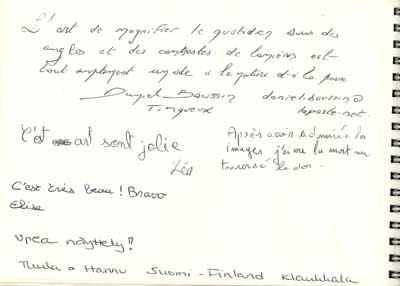 L'art de magnifier le quotidien sous des
angles et des contrastes de lumières est
tout simplement un ode à la nature et à la
Daniel Boussin daniel.boussin@
Tinqueux laposte.net.
C'est art sont jolie
Léa
Après avoir admiré les
images j'ai vu la mort
traversé
C'est très beau! Bravo
Elise
Upea näyttely!
Tuula & Hannu Suomi-Finland Klaukkala